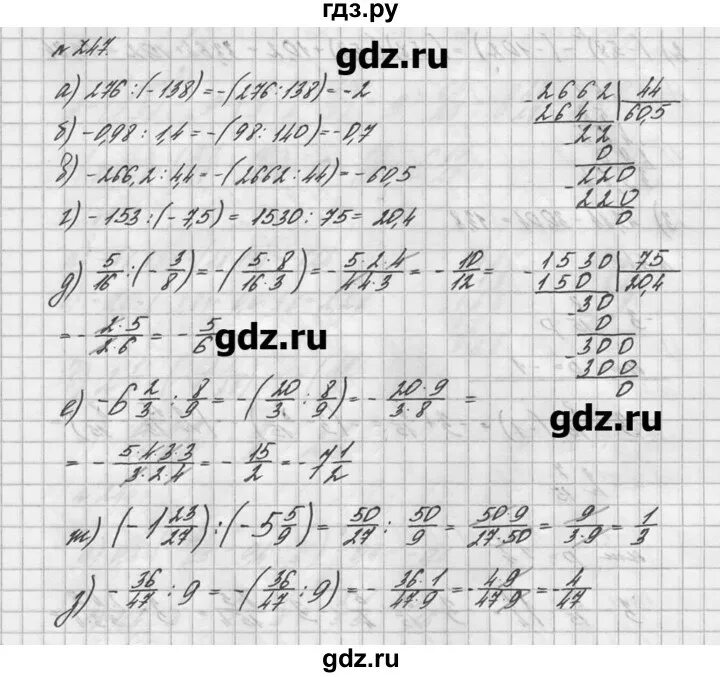 гдз.ру
№ 247.
gdz.ru
а) 276 : (-138) = -(276:138) = -2
б) -0,98 : 1,4 = -(98 : 140) = -0,7
в) -266,2 : 4,4 = -(2662 : 44) = -60,5
г) -153 : (-7,5) = 1530 : 75 = 20,4
2662 | 44
264 | 60,5
22
0
220
220
0
д) 5/16 : (-3/8) = -(5·8/16·3) = -5·2·4/4·4·3 = -10/12 =
= -2·5/2·6 = -5/6
gdz.ru
1530 | 75
150 | 20,4
30
0
300
300
0
gdz.ru
е) -6 2/3 : 8/9 = -(20/3 : 8/9) = -20·9/3·8 =
= -5·4·3·3/3·2·4 = -15/2 = -7 1/2
ж) (-1 23/27) : (-5 5/9) = 50/27 : 50/9 = 50·9/27·50 = 9/3·9 = 1/3
з) -36/47 : 9 = -(36/47 : 9) = -36·1/47·9 = -4·9/47·9 = -4/47
gdz.ru